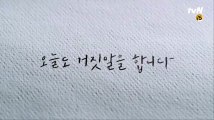 tvN
오늘도 거짓말을 합니다